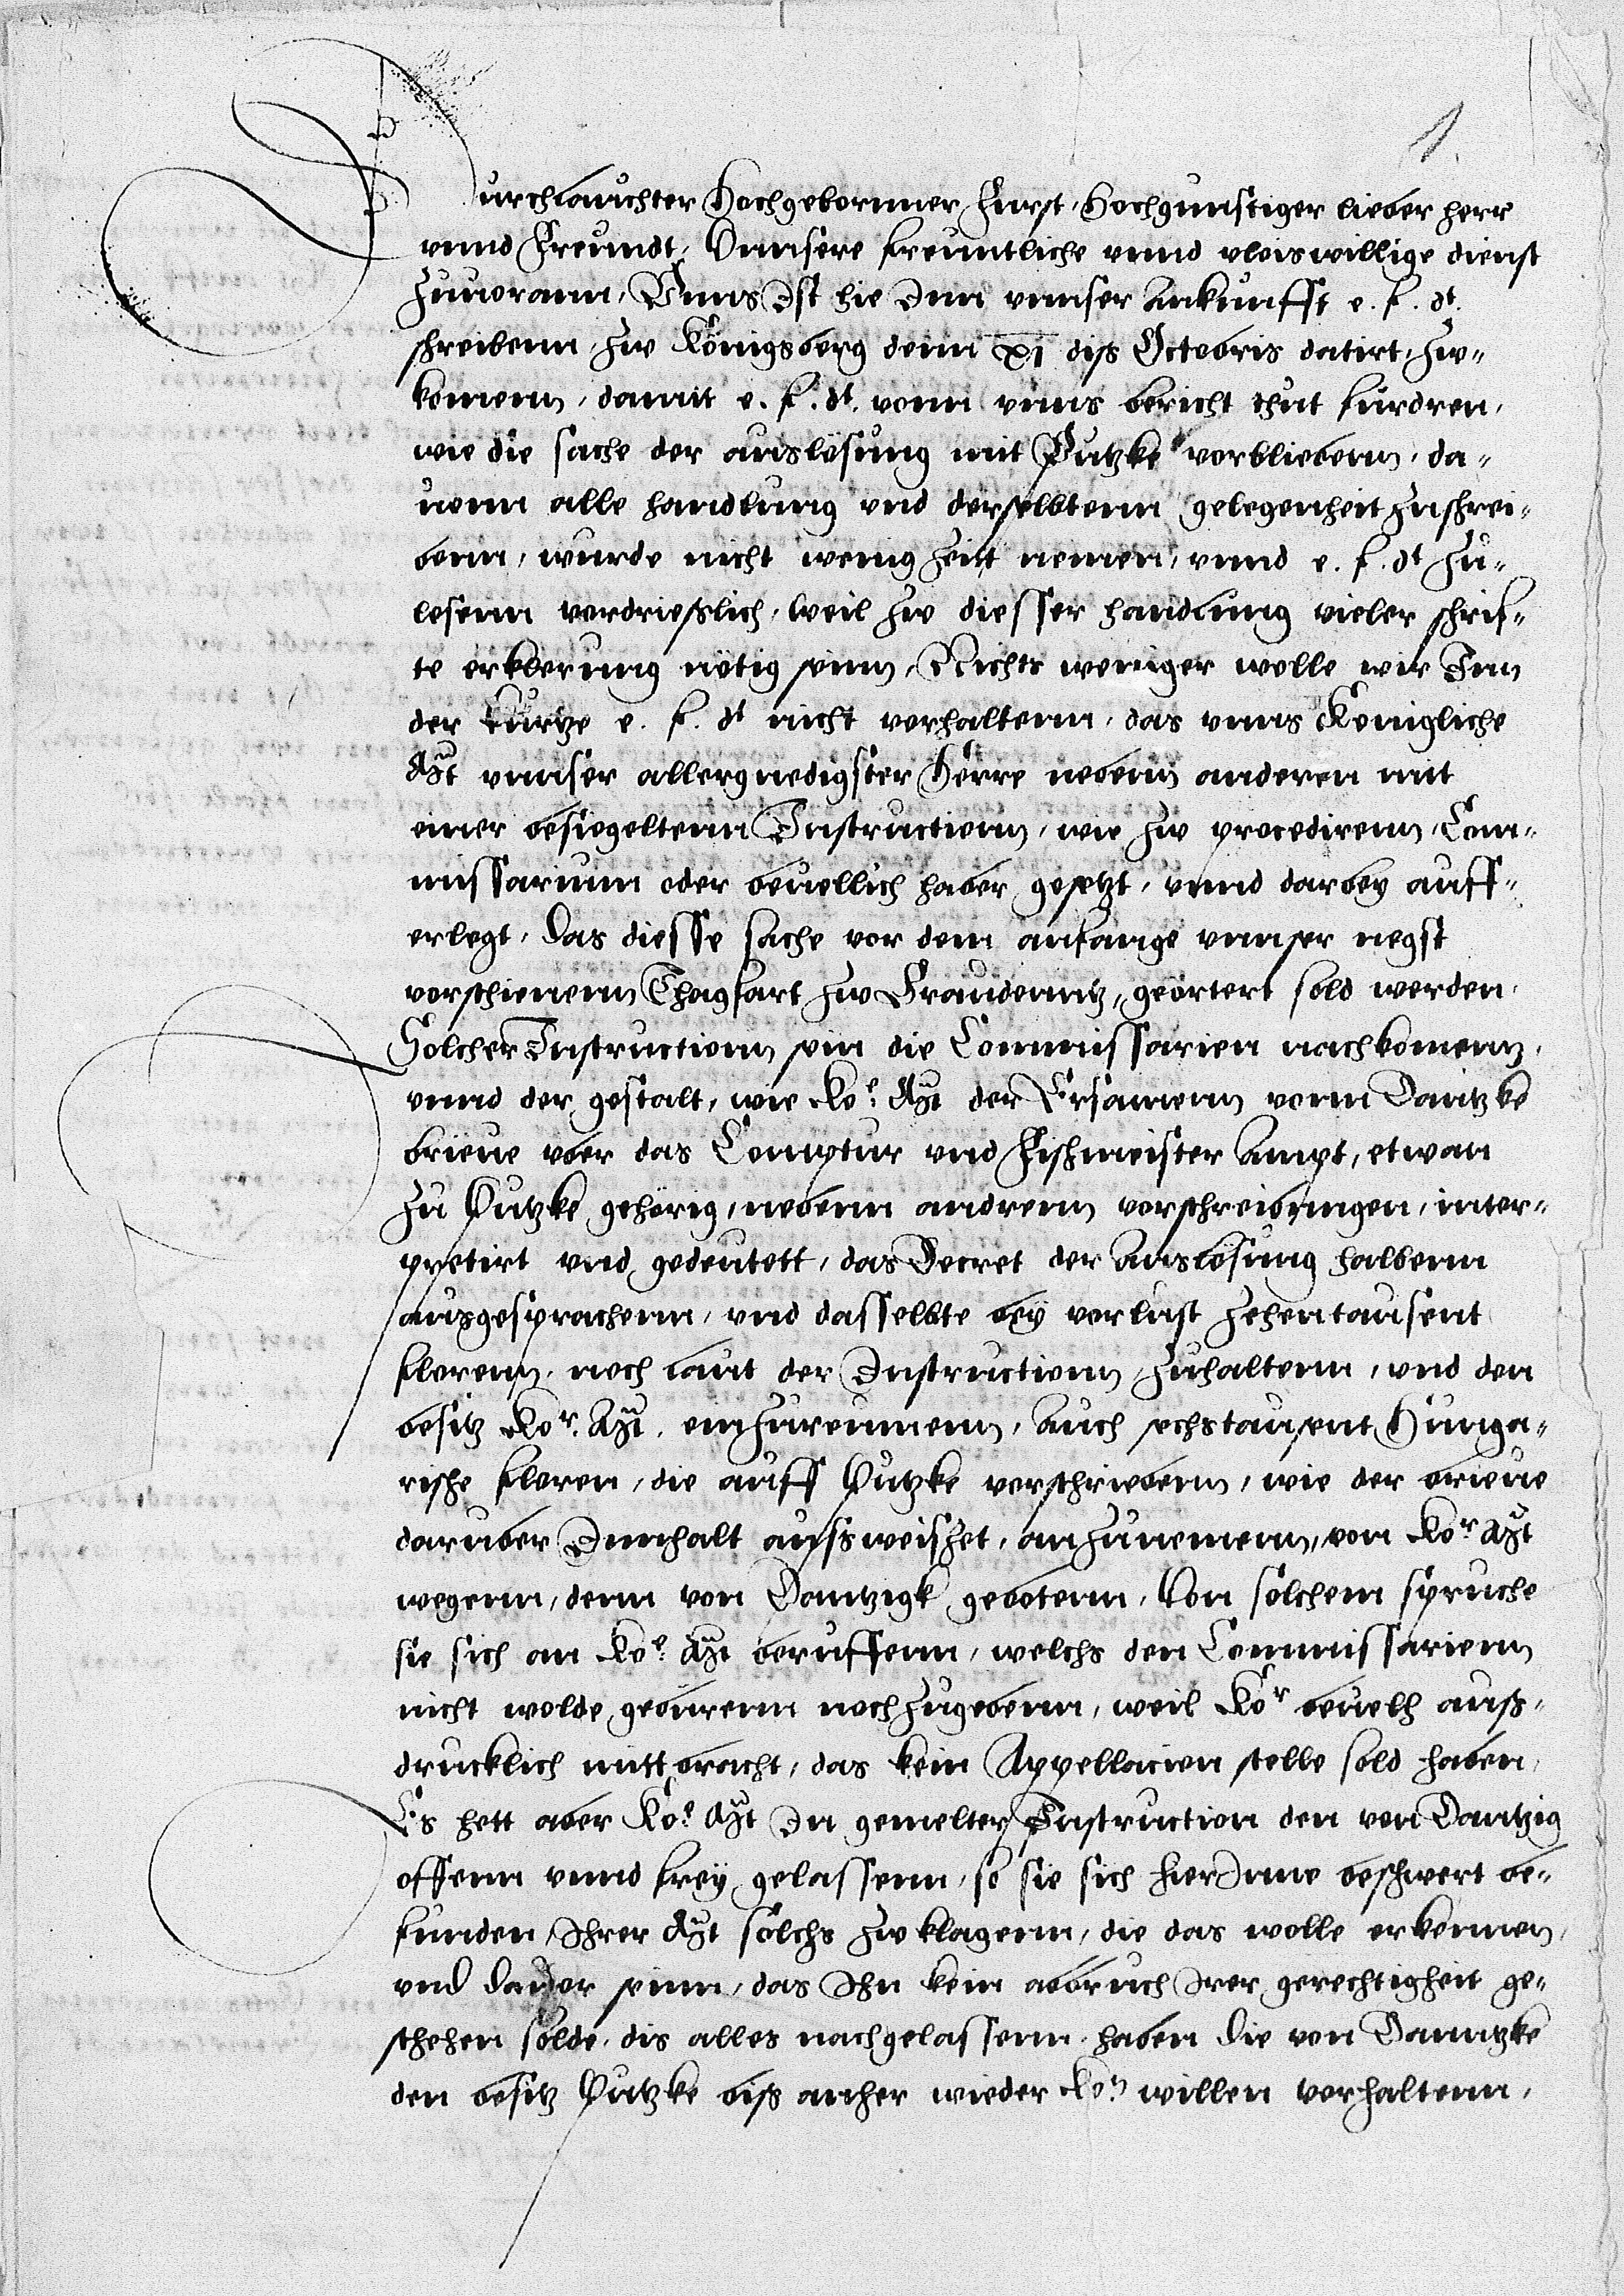 1
Durchlauchter Hochgebornner Furst, Hochgunstiger lieber herr
vnnd Freundt, Vnnsere freuntliche vnnd vleiswillige dienst
zuuorann, Vnns Ist hie Inn vnnser ankunfft e. f. dt.
schreibenn, zw Königsberg denn XI diß Octobris datirt, zw-
komenn, damit e. f. dt. vonn vnns bericht thut furdren,
wie die sache der auslösung mit Putzke vorbliebenn, da-
uonn alle handlung vnd derselbtenn gelegenheit zuschrei-
benn, wurde nicht wenig zeitt nemen, vnnd e. f. dt zu-
lesenn vordrießlich, weil zw diesser handlung vieler schrif-
te erklerung nötig seinn, Nichts weniger wolle wir Inn
der kurtze e. f. dt nicht vorhaltenn, das vnns Königliche
Mt vnnser allergnedigster Herre nebenn anderen mit
einer besiegeltenn Instructionn, wie zw procedirenn, Com-
missarium oder beuellich haber gesetzt, vnnd darbey auff-
erlegt, Das diesse sache vor dem anfange vnnser negst
vorschienenn Thagfart zw Graudenntz, geörtert sold werden,
Solcher Instructionn sein die Commissarien nachkomenn,
vnnd der gestalt, wie Koe. Mt der Ersamenn vonn Dantzke
brieue vber das Comptur vnd Fischmeister Ampt, etwan
zu Putzke gehörig, nebenn andrenn vorschreibungen, inter-
pretirt vnd gedeutett, das Decret der Auslösung halbenn
ausgesprachenn, vnd dasselbte bey vorlust zehentausent
florenn, noch laut der Instructionn, zuhaltenn, vnd den
besitz Kor. Mt. einzureumenn, auch sechstausent Hunga-
rische floren, die auff Putzke vorschriebenn, wie der brieue
daruber Innhalt außweiszet, anzunemenn, von Kor Mt
wegenn, denn von Dantzigk gebotenn, Von solchem spruche
sie sich an Koe. Mt beruffenn, welchs den Commissarienn
nicht wolde geburenn nochzugebenn, weil Kor beuelh auß-
drucklich mitt bracht, das kein Appellacion stelle sold haben,
Es hett aber Koe Mt In gemelter Instruction den von Dantzig
offenn vnnd frey gelassenn, so sie sich hierInne beschwert be-
funden, Ihrer Mt solchs zw klagenn, die das wolle erkennen,
vnd dauor seinn, das Ihn kein abbruch Irer gerechtigheit ge-
schehen solde, dis alles nachgelassenn, haben die von Danntzke
den besitz Putzke biß anher wieder Kon willen vorhaltenn,